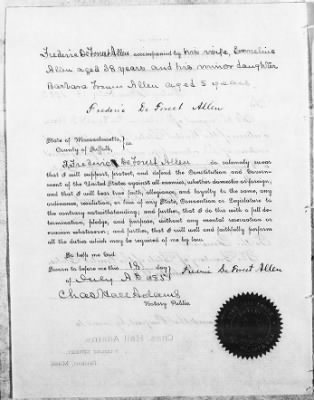 Frederic De Forest Allen accompanied by his wife, Emmeline
Allen aged 38 years and his minor daughter
Barbara Allen aged 5 years
Frederic De Forest Allen
State of Massachusetts,
County of Suffolk, } ss
I, Frederic De Forest Allen do solemnly swear
that I will support, protect, and defend the Constitution and Govern-
ment of the United States against all enemies, whether domestic or foreign;
and that I will bear true faith, allegiance, and loyalty to the same, any
ordinance, resolution, or law of any State, Convention or Legislature to
the contrary notwithstanding; and further, that I do this with a full de-
termination, pledge, and purpose, without any mental reservation or
evasion whatsoever; and further, that I will well and faithfully perform
all the duties which may be required of me by law.
So help me God
Sworn to before me this 18 day } Frederic De Forest Allen
of July A.D. 1885
Chas Hall Adams
Notary Public
Chas. Hall Adams
Boston, Mass.